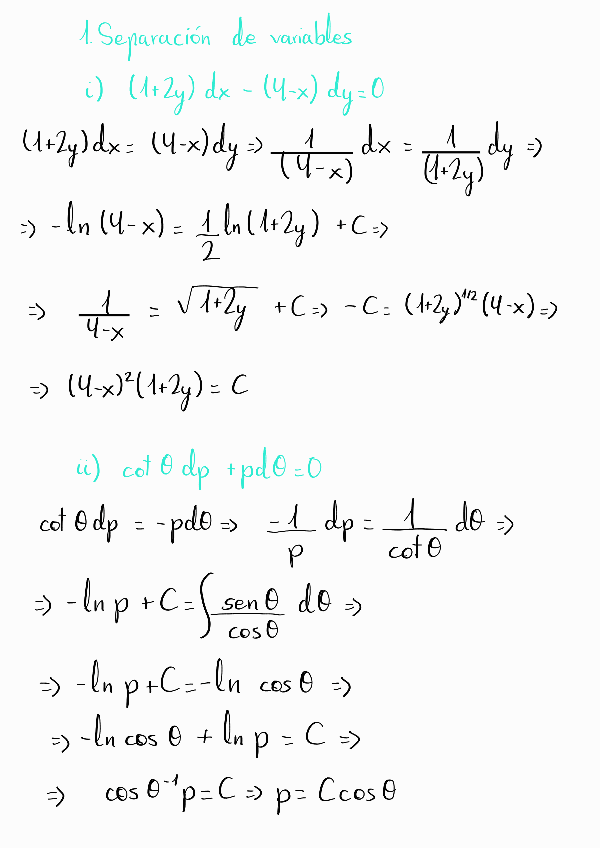 1. Separación de variables
i) (1+2y) dx - (4-x) dy = 0
(1+2y) dx = (4-x) dy => 1/(4-x) dx = 1/(1+2y) dy =>
=> -ln (4-x) = 1/2 ln (1+2y) + C =>
=> 1/4-x = √1+2y + C => -C = (1+2y)^1/2 (4-x) =>
=> (4-x)² (1+2y) = C
ii) cot θ dp + pdθ = 0
cot θ dp = -pdθ => -1/p dp = 1/cot θ dθ =>
=> -ln p + C = ∫ sen θ/cos θ dθ =>
=> -ln p + C = -ln cos θ =>
=> -ln cos θ + ln p = C =>
=> cos θ⁻¹ p = C => p = C cos θ